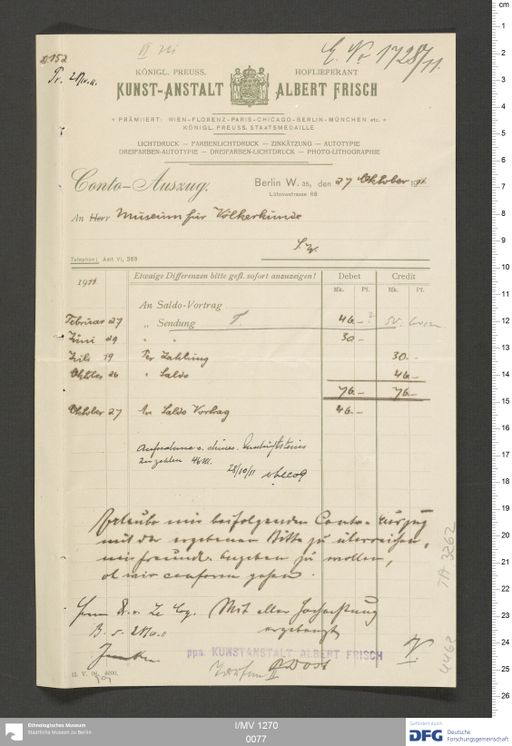 E. No 1728/11
KÖNIGL. PREUSS. HOFLIEFERANT
KUNST-ANSTALT ALBERT FRISCH
PRÄMIIERT: WIEN-FLORENZ-PARIS-CHICAGO-BERLIN-MÜNCHEN etc.
KÖNIGL. PREUSS. STAATSMEDAILLE
LICHTDRUCK — FARBENLICHTDRUCK — ZINKÄTZUNG — AUTOTYPIE
DREIFARBEN-AUTOTYPIE — DREIFARBEN-LICHTDRUCK — PHOTO-LITHOGRAPHIE
Conto-Auszug.
Berlin W. 35, den 27 Oktober 1911
Lützowstrasse 66
An Herr Museum für Völkerkunde
S.W.
Telephon: Amt VI, 388
1911 Etwaige Differenzen bitte gefl. sofort anzuzeigen! Debet Credit
Mk. Pf. Mk. Pf.
An Saldo-Vortrag
Februar 27 „ Sendung 46.–
Juni 29 " " 30.–
Juli 19 Per Zahlung 30.–
Oktober 26 " Saldo 46.–
76.– 76.–
Oktober 27 An Saldo Vortrag 46.–
zu zahlen 46 M.
28/10/11
Erlaube mir beifolgenden Conto-Auszug
mit der ergebenen Bitte zu überreichen,
mir freundl. angeben zu wollen,
ob wir conform gehen.
Mit aller Hochachtung
ergebenst
ppa. KUNSTANSTALT ALBERT FRISCH
TA 3262
4462
I/MV 1270
0077
Ethnologisches Museum
Staatliche Museen zu Berlin
Gefördert durch
DFG Deutsche
Forschungsgemeinschaft
cm
1
2
3
4
5
6
7
8
9
10
11
12
13
14
15
16
17
18
19
20
21
22
23
24
25
26